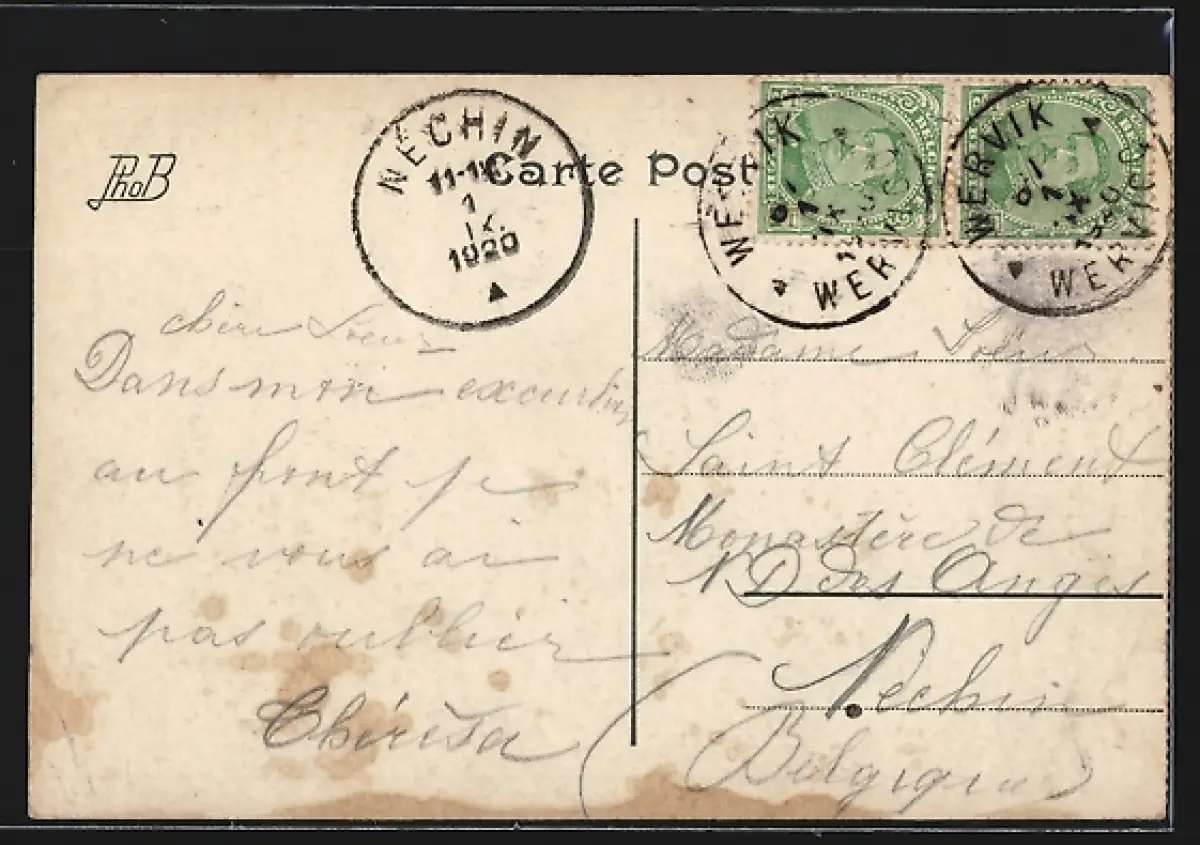 PhoB
NÉCHIN
11-12
1
IX
1920
Carte Post
WERVIK
1
IX
1920
WERVICQ
chère Soeur
Dans mon excursion
au front je
ne vous ai
pas oublier
Madame Soeur
Saint Clément
Monastère de
ND des Anges
Néchin
Belgique